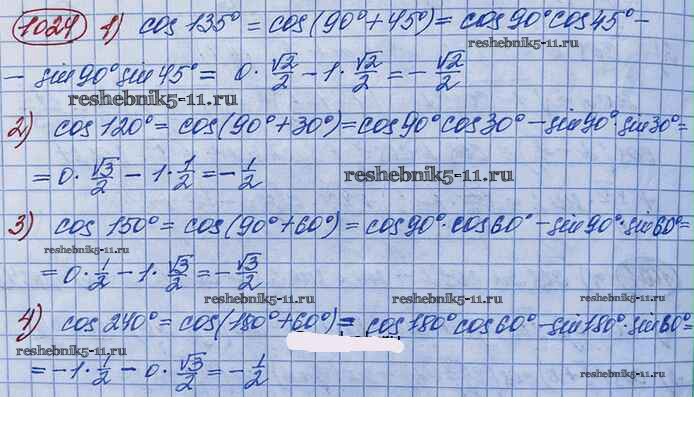 1024 1) cos 135° = cos(90° + 45°) = cos 90° cos 45° -
- sin 90° sin 45° = 0 · √2/2 - 1 · √2/2 = - √2/2
reshebnik5-11.ru
reshebnik5-11.ru
2) cos 120° = cos(90° + 30°) = cos 90° cos 30° - sin 90° · sin 30° =
= 0 · √3/2 - 1 · 1/2 = - 1/2
reshebnik5-11.ru
3) cos 150° = cos(90° + 60°) = cos 90° · cos 60° - sin 90° · sin 60° =
reshebnik5-11.ru
= 0 · 1/2 - 1 · √3/2 = - √3/2
reshebnik5-11.ru
reshebnik5-11.ru
reshebnik5-11.ru
4) cos 240° = cos(180° + 60°) = cos 180° cos 60° - sin 180° · sin 60° =
reshebnik5-11.ru
= -1 · 1/2 - 0 · √3/2 = - 1/2
reshebnik5-11.ru